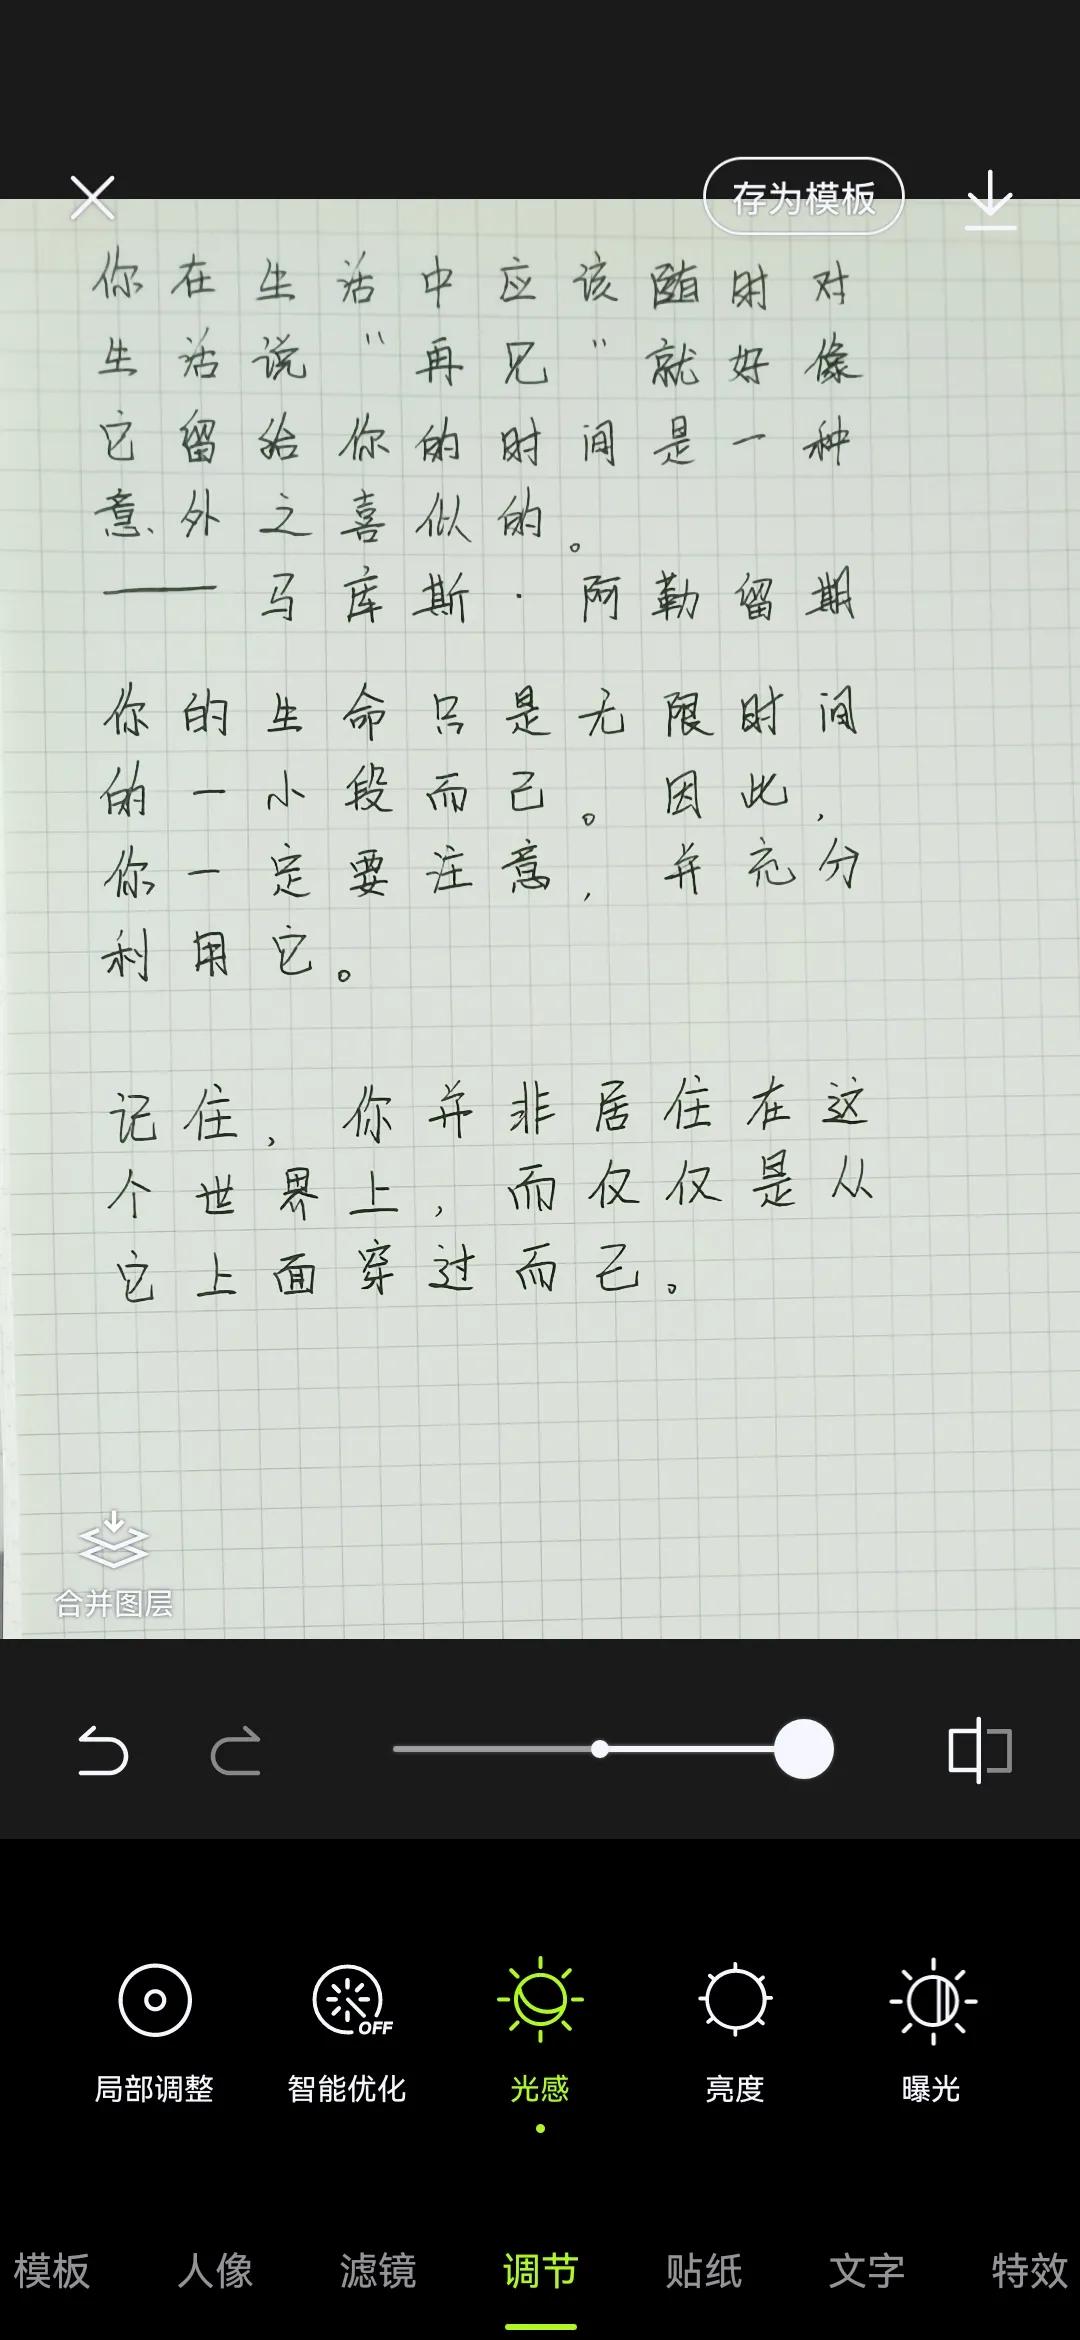 存为模板
你在生活中应该随时对
生活说“再见”就好像
它留给你的时间是一种
意外之喜似的。
——马库斯·阿勒留斯
你的生命只是无限时间
的一小段而已。因此,
你一定要注意,并充分
利用它。
记住,你并非居住在这
个世界上,而仅仅是从
它上面穿过而已。
合并图层
OFF
局部调整 智能优化 光感 亮度 曝光
模板 人像 滤镜 调节 贴纸 文字 特效